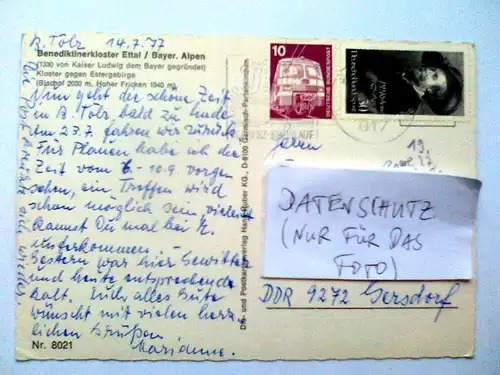 B. Tölz 14.7.77
Benediktinerkloster Ettal / Bayer. Alpen
(1330 von Kaiser Ludwig dem Bayer gegründet)
Kloster gegen Estergebirge
(Bischof 2030 m, Hoher Fricken 1940 m)
Nun geht die schöne Zeit
in B. Tölz bald zu Ende
Am 27.7. fahren wir zurück.
Für Plauen habe ich die
Zeit vom 6.-10.9. vorgen
sehen, ein Treffen wird
schon möglich sein vielleicht
kannst Du mal bei
unterkommen.
Gestern war hier Gewitter
und heute entsprechende
kalt. Euch alles Gute
wünscht mit vielen herz
lichen Grüßen
Marianne.
Nr. 8021
Die- und Postkartenverlag Huber KG., D-8100 Garmisch-Partenkirchen
10
DEUTSCHE BUNDESPOST
Herrn
DATENSCHUTZ
(NUR FÜR DAS
FOTO)
DDR 9272 Gersdorf